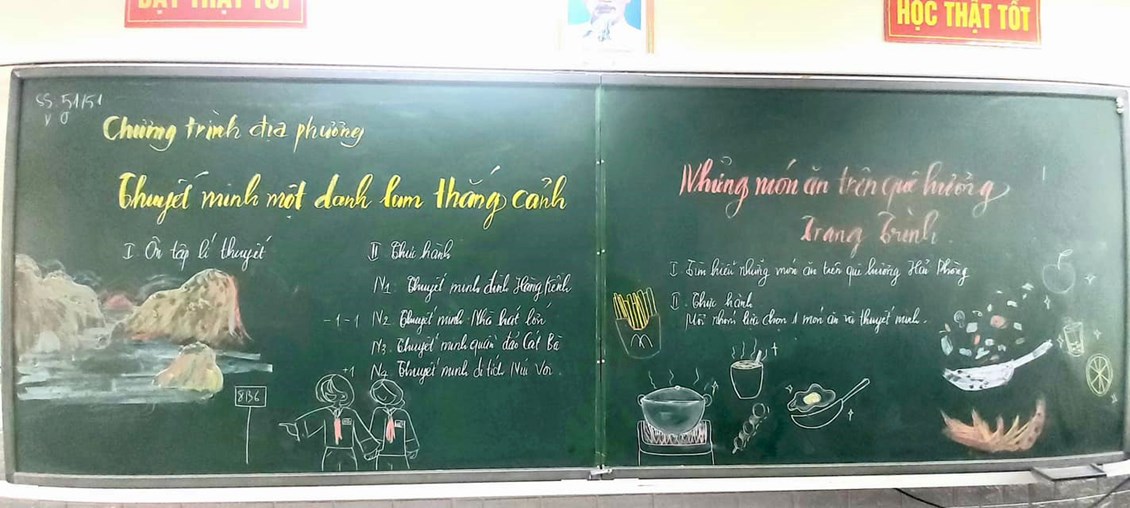 DẠY THẬT TỐT
HỌC THẬT TỐT
SS: 51/51
V: 0
Chương trình địa phương
Thuyết minh một danh lam thắng cảnh
I Ôn tập lí thuyết
II Thực hành
N1: Thuyết minh đình Hàng Kênh
-1-1 N2: Thuyết minh Nhà hát lớn
N3: Thuyết minh quần đảo Cát Bà
-1 N4: Thuyết minh di tích Núi Voi.
8B6
Những món ăn trên quê hương
Trạng Trình
I. Tìm hiểu những món ăn trên quê hương Hải Phòng
II. Thực hành
Mỗi nhóm lựa chọn 1 món ăn và thuyết minh.